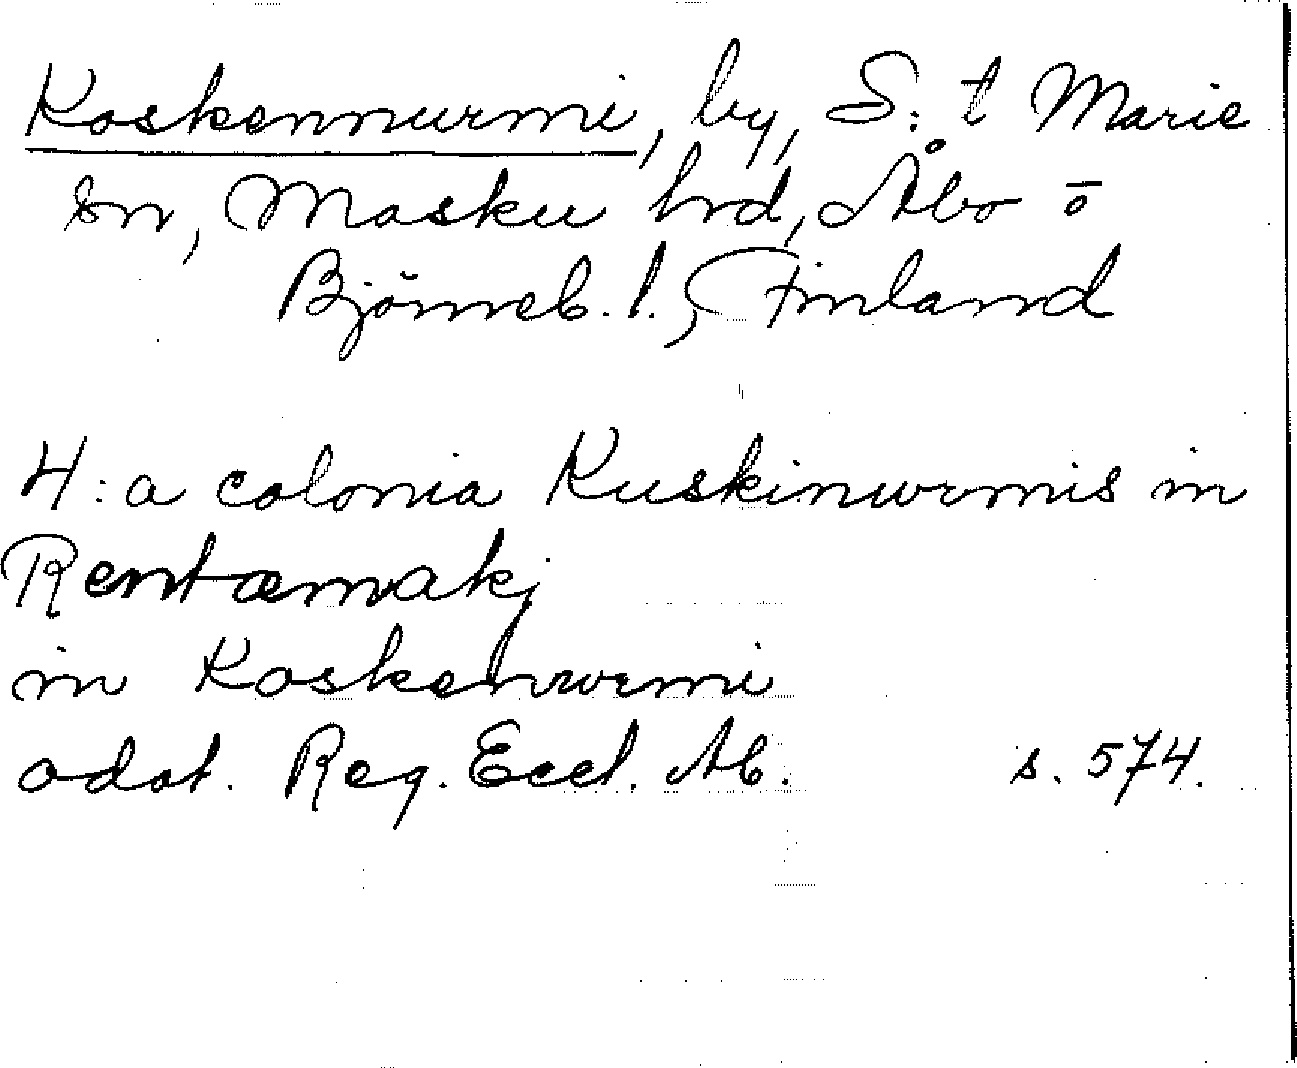 Koskennurmi, by, S:t Marie
sn, Masku hrd, Åbo o
Björneb. l., Finland
4: a colonia Kuskinwrmis in
Rentamakj
in Koskenwrmi
odat. Reg. Eccl. Ab. s. 574.